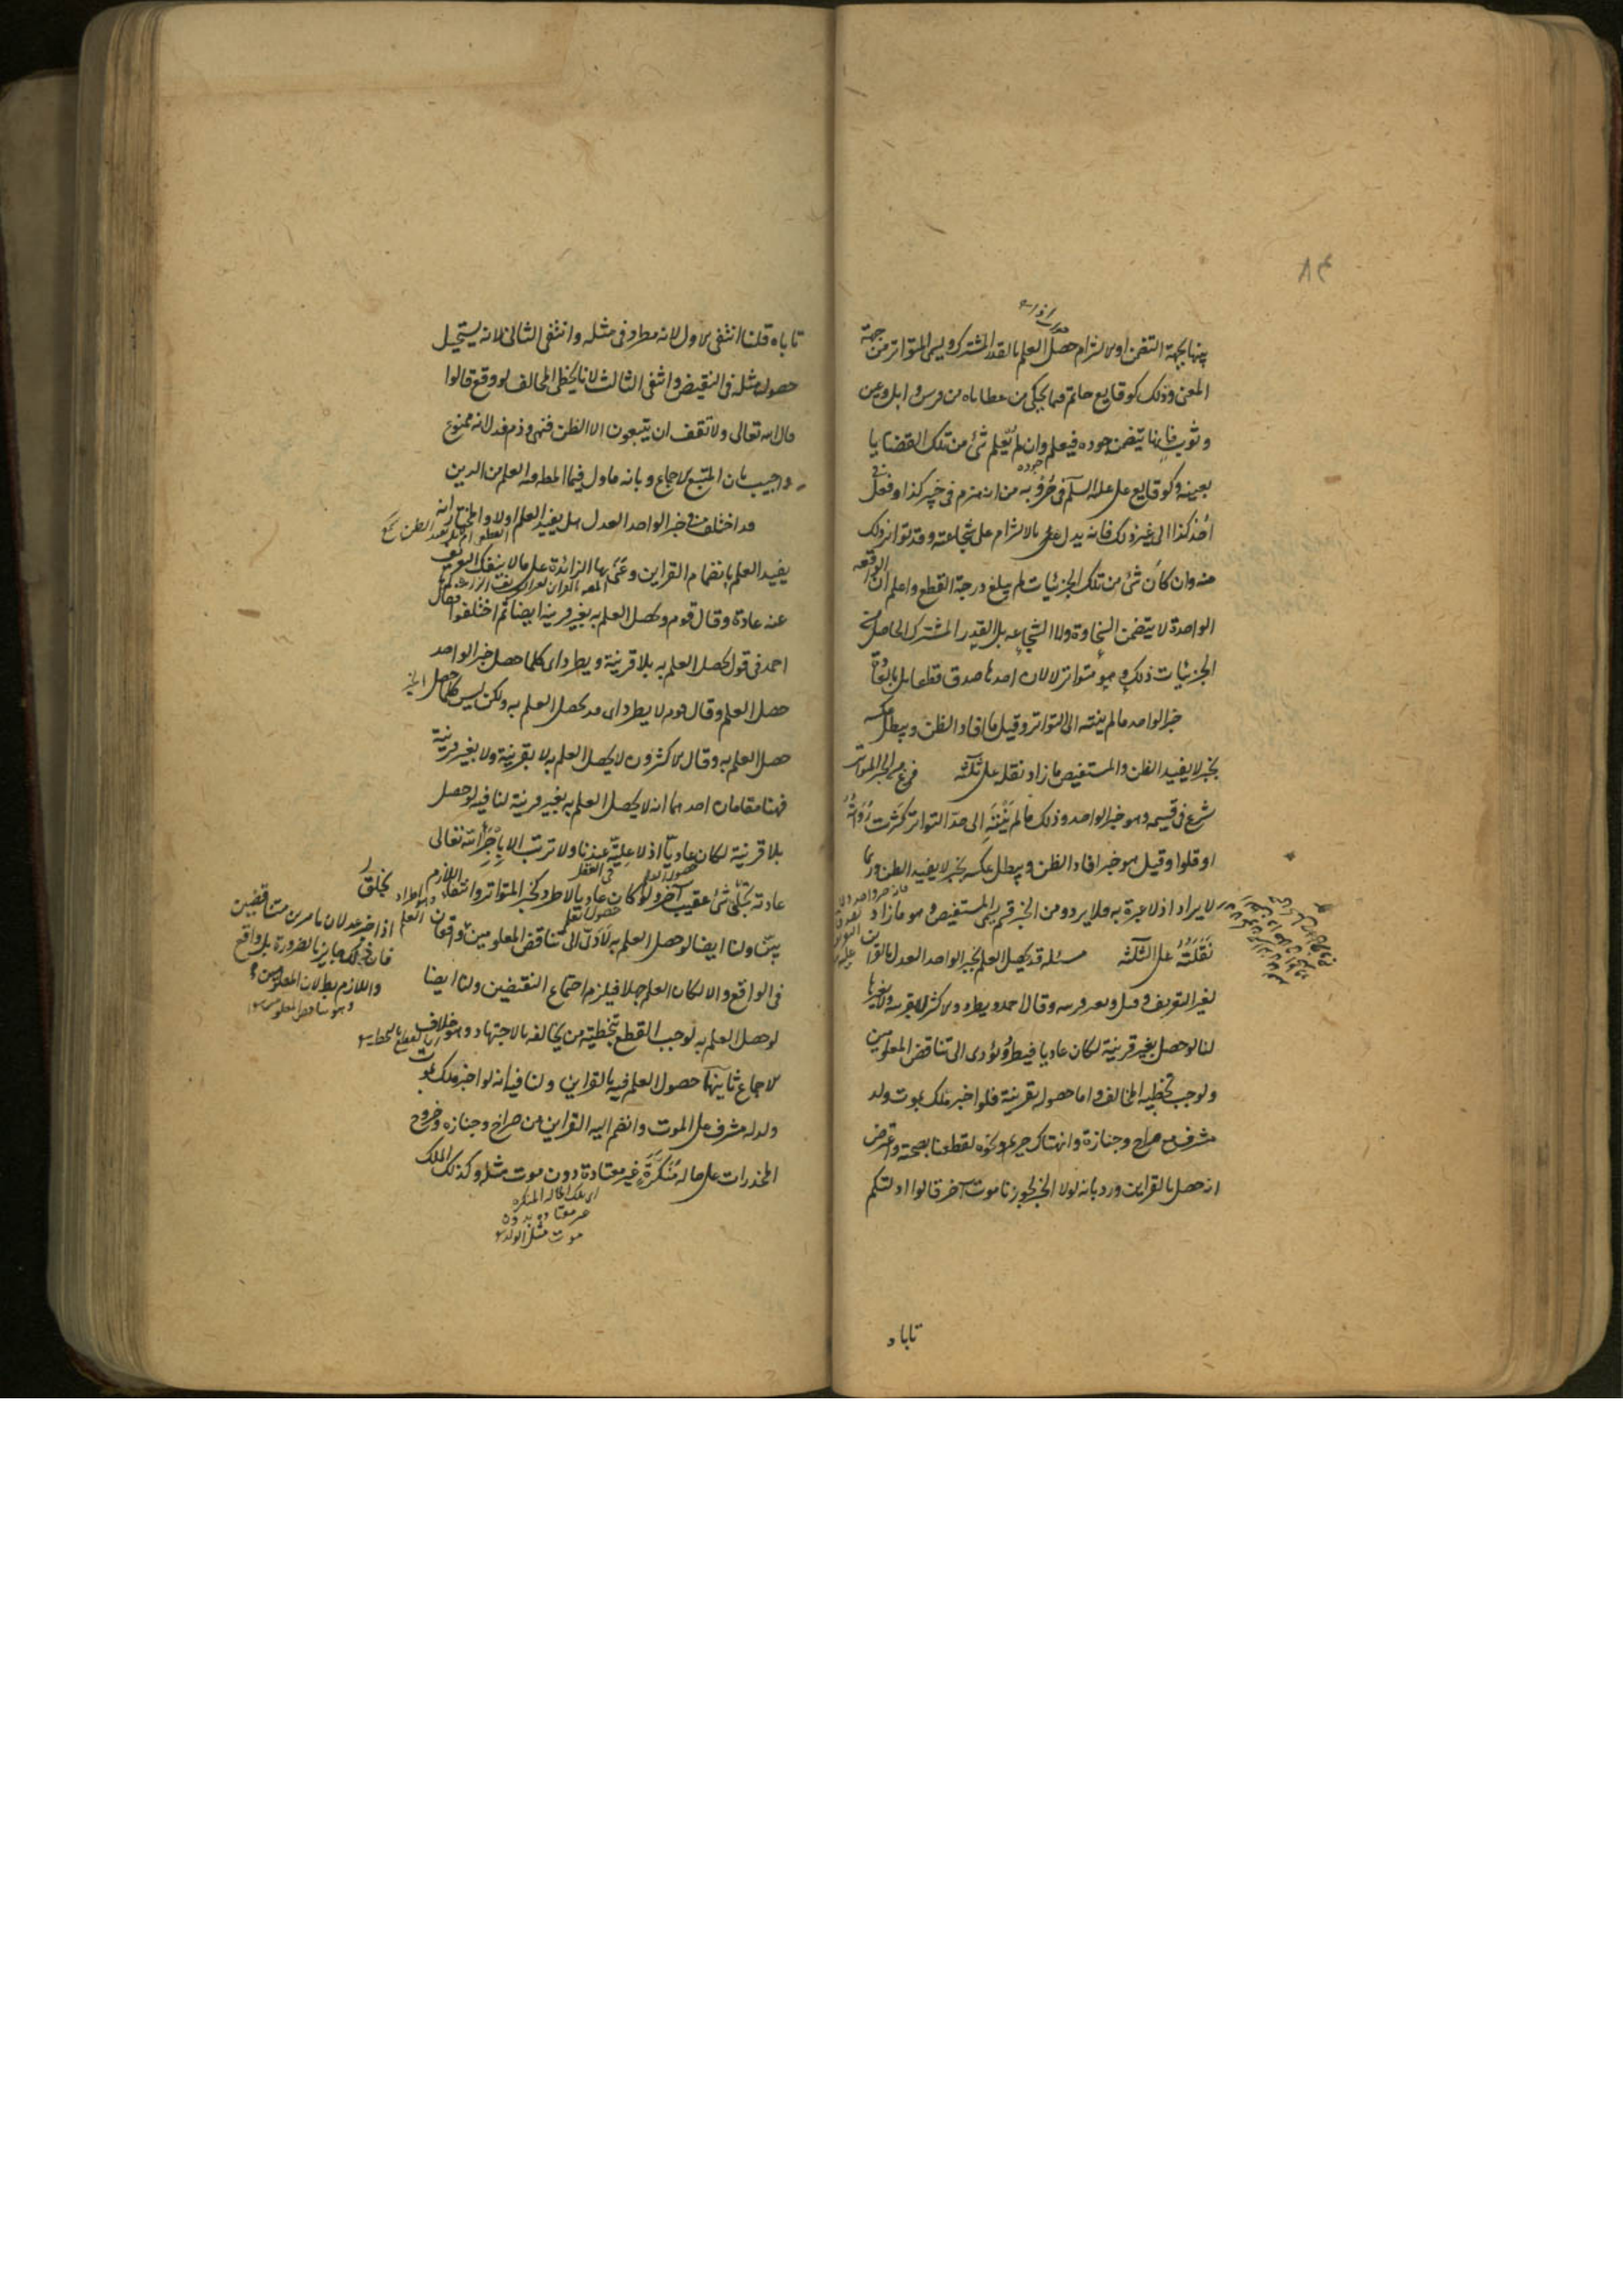 ٨٤
بينها بجهة التضمن او الالتزام حصل العلم بالقدر المشترك ويسمى المتواتر من جهة
المعنى وذلك كوقايع حاتم فيما يحكى من عطاياه من فرس وابل وعين
وثوب فانها يتضمن جوده فيعلم وان لم يعلم شئ من تلك القضايا
بعينه وكوقايع على عليه السلم فى حروبه من انه هزم فى خيبر كذا وفعل فى
احد كذا الى غير ذلك فانه يدل على بالالتزام على شجاعته وقد تواتر ذلك
منه وان كان شئ من تلك الجزئيات لم يبلغ درجة القطع واعلم ان الواقعة
الواحدة لا يتضمن السخاوة ولا الشجاعه بل القدر المشترك الحاصل من
الجزئيات ذلك وهو متواتر لا لان احدها صدق قطعا بل بالعادة
خبر الواحد ما لم ينته الى التواتر وقيل ما افاد الظن ويبطل عكسه
بخبر لا يفيد الظن والمستفيض ما زاد نقله على ثلثة فرغ من الخبر المتواتر
شرع فى قسيمه وهو خبر الواحد وذلك ما لم ينته الى حد التواتر كثرت رواته
او قلوا وقيل هو خبر افاد الظن ويبطل عكسه بخبر لا يفيد الظن وربما
لا يراد اذ لا عبرة به فلا يرد ومن الخبر قسم يسمى المستفيض وهو ما زاد
نقلته على الثلثة مسئلة قد يحصل العلم بخبر الواحد العدل بالقراين
لغير التعريف وقيل وبغير قرينه وقال احمد ويطرد والاكثر لا بقرينه ولا بغيرها
لنا لو حصل بغير قرينة لكان عاديا فيطرد ولؤدى الى تناقض المعلومين
ولوجب تخطية المخالف واما حصوله بقرينة فلو اخبر ملك بموت ولد
مشرف مع صراخ وجنازة وانهتاك حريم ونحوه لقطعنا بصحته واعترض
انه حصل بالقراين ورد بانه لولا الخبر لجوزنا موت آخر قالوا ادلتكم
تاباه
تاباه قلنا انتفى الاول لانه مطرد فى مثله وانتفى الثانى لانه يستحيل
حصول مثله فى النقيض وانتفى الثالث لانا نخطى المخالف لو وقع قالوا
قال الله تعالى ولا تقف ان يتبعون الا الظن فنهى وذم فدل انه ممنوع
واجيب بان المتبع الاجماع وبانه ماول فيما المطلوب فيه العلم من الدين
قد اختلف فى خبر الواحد العدل هل يفيد العلم او لا والمختار انه
يفيد العلم بانضمام القراين وعنى بها الزائدة على ما لا ينفك التعريف
عنه عادة وقال قوم يحصل العلم به بغير قرينة ايضا ثم اختلفوا فقال
احمد فى قول يحصل العلم به بلا قرينة ويطرد اى كلما حصل خبر الواحد
حصل العلم وقال قوم لا يطرد اى قد يحصل العلم به ولكن ليس كلما حصل الخبر
حصل العلم به وقال الاكثرون لا يحصل العلم به لا بقرينة ولا بغير قرينة
فهنا مقامان احدهما انه لا يحصل العلم به بغير قرينة لنا فيه لو حصل
بلا قرينة لكان عاديا اذ لا علية عندنا ولا ترتب الا باجراء الله تعالى
عادته بخلق شئ عقيب آخر ولو كان عاديا لاطرد كخبر المتواتر وانتفاء اللازم
بين ولنا ايضا لو حصل العلم به لادى الى تناقض المعلومين
فى الواقع والا لكان العلم جهلا فيلزم اجتماع النقيضين ولنا ايضا
لو حصل العلم به لوجب القطع بتخطية من يخالفه بالاجتهاد وهو خلاف
الاجماع ثانيهما حصول العلم فيه بالقراين ولنا فيه انه لو اخبر ملك بموت
ولد له مشرف على الموت وانضم اليه القراين من صراخ وجنازه وخروج
المخدرات على حالة منكرة غير معتادة دون موت مثله وكذلك الملك
اى تلك الحالة المنكره
غير معتاده بدون
موت مثل الولد
اذا اخبر عدلان بامرين متناقضين
فان ذلك جايز بالضرورة بل واقع
واللازم بطلان المعلومين
وهو تناقض المعلومين